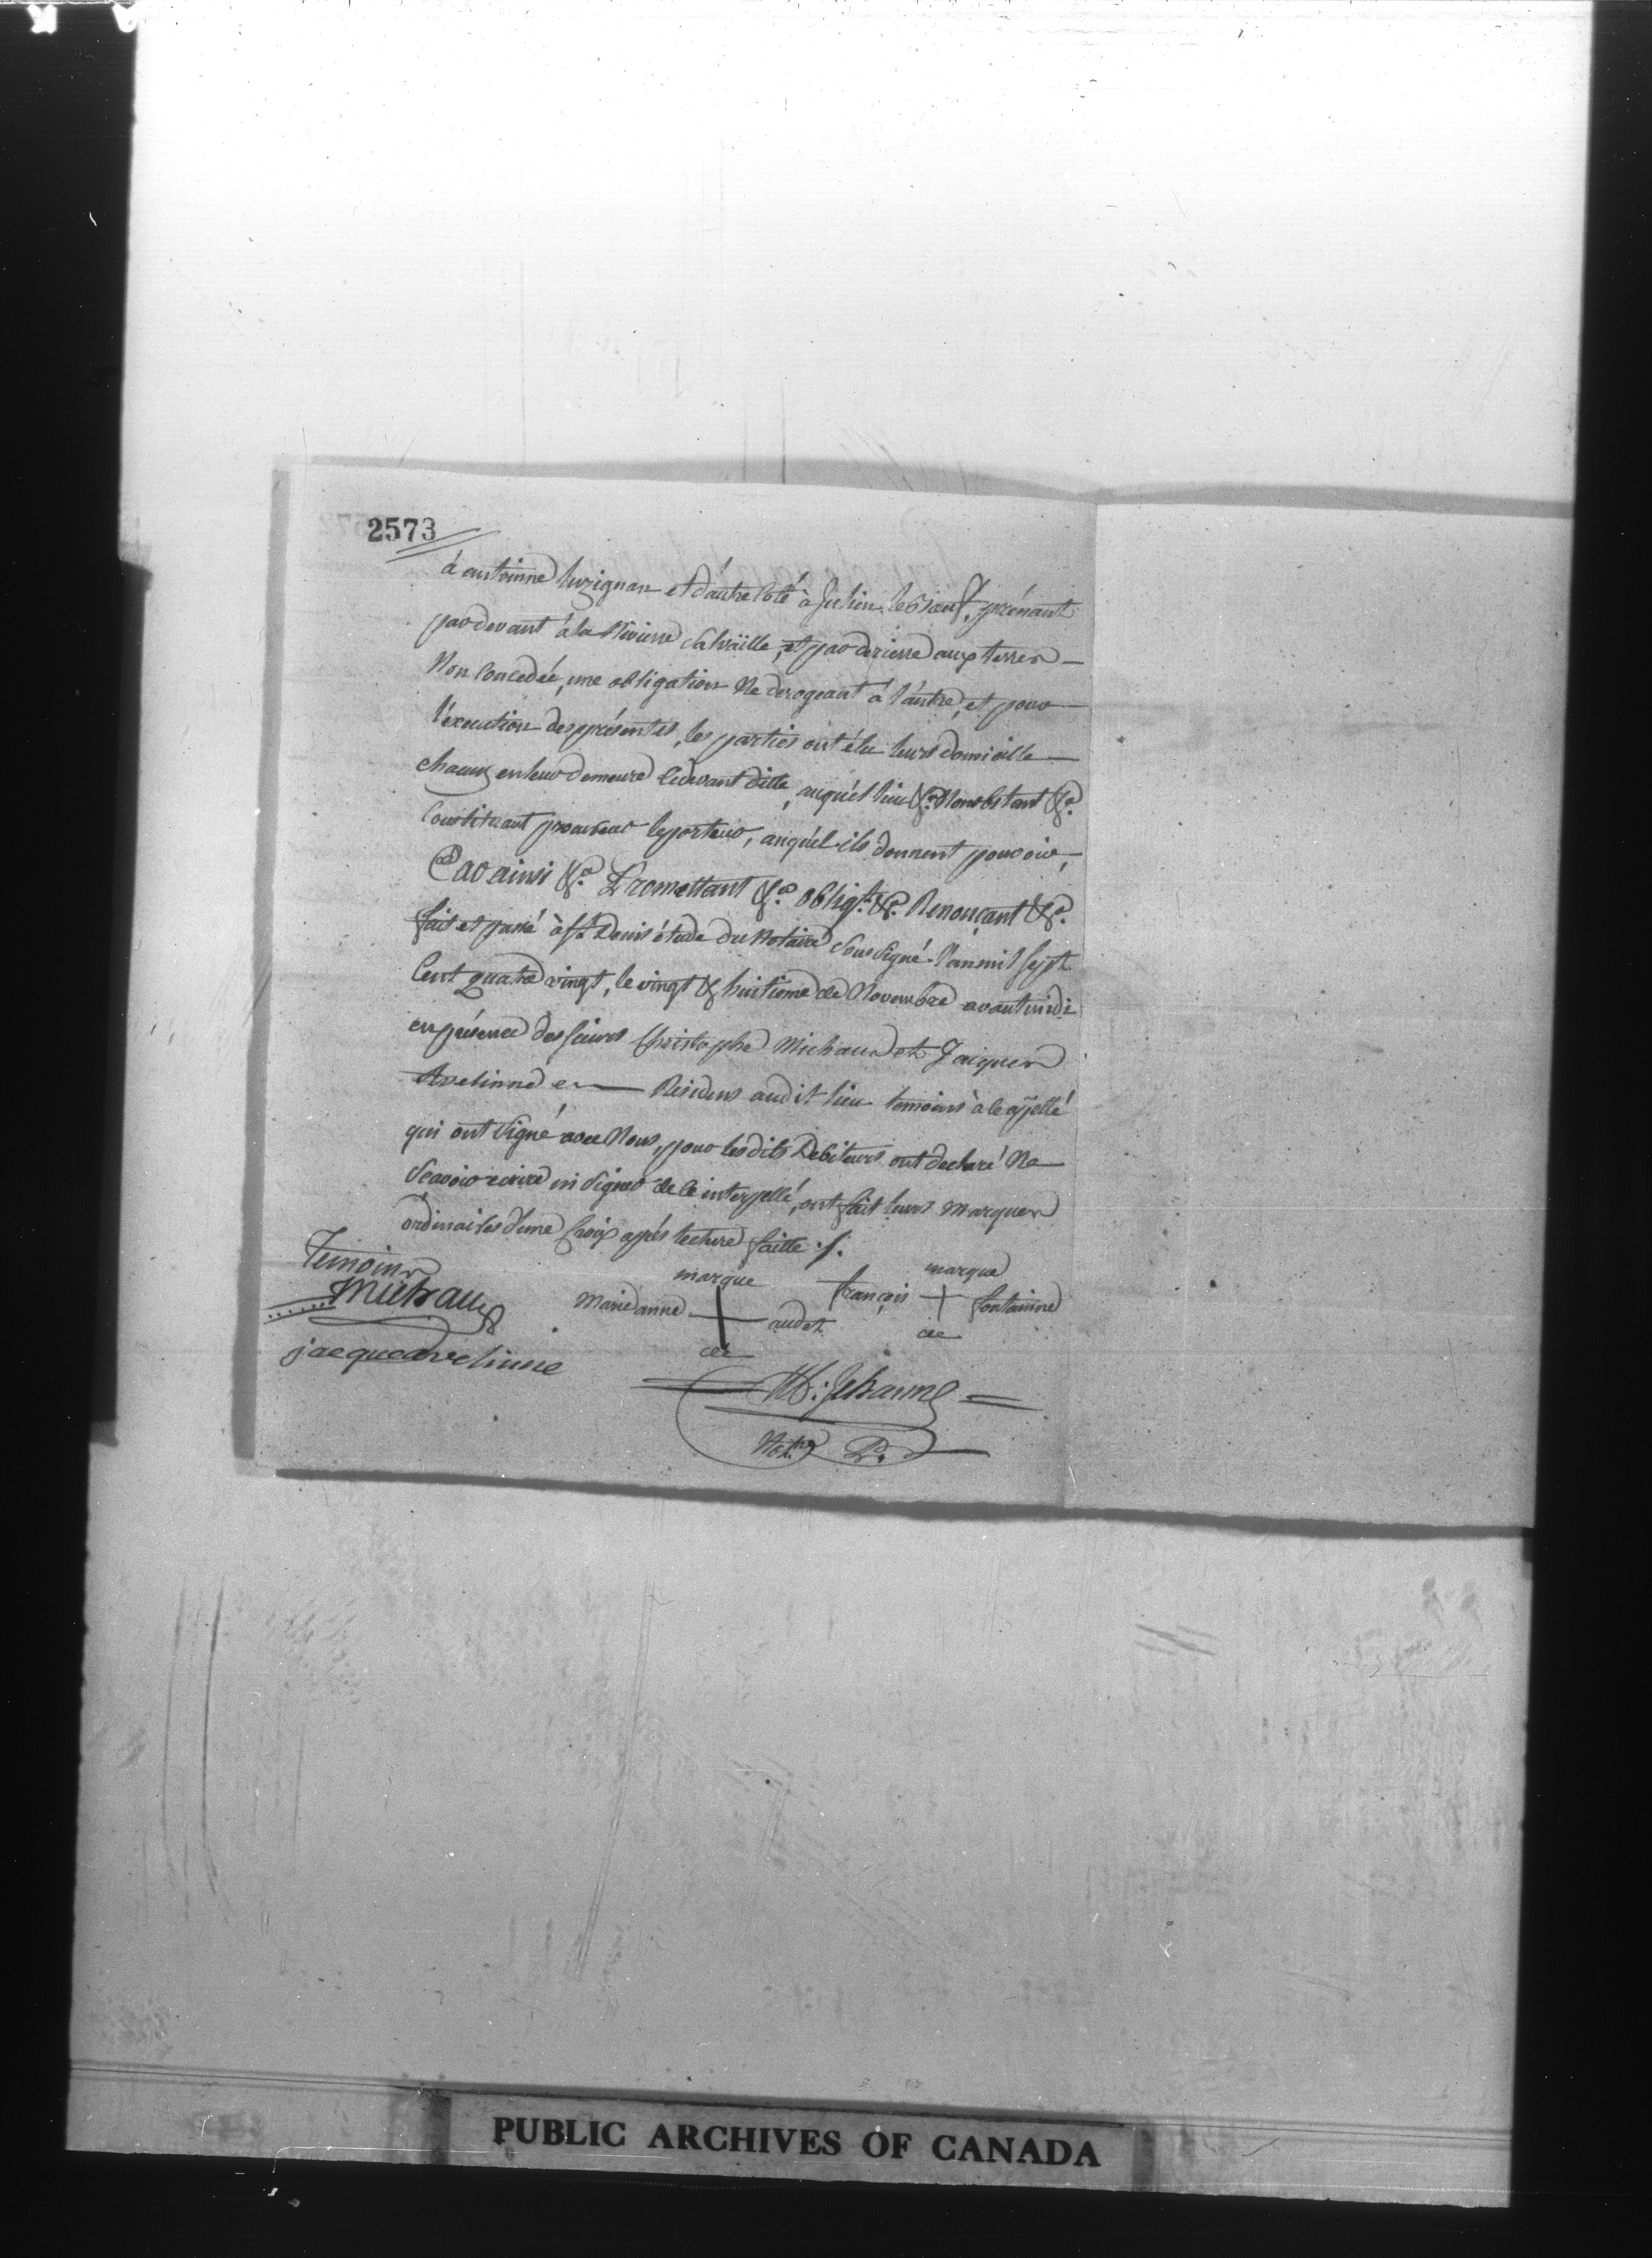 2573
à antoinne luzignan et d'autre Coté à Julien lebrœuf, prénant
par devant à la Rivierre salvaille, et par derierre aux terres
Non Concedée, une obligation Ne derogeant à l'autre, et pour
l'execution des présentes, les parties ont élu leurs domicille
chacun en leur demeure Cidevant ditte, auquél lieu &ca. Nonobstant &ca.
Constituant procureur le porteur, auquel ils donnent pouvoir,
Car ainsi &ca. Promettant &ca. obligt. &ca. Renonçant &ca.
fait et passé à St. Denis étude du Notaire Soussigné L'an mil Sept
Cent quatre vingt, le vingt & huitieme de Novembre avant midi
en présence des sieurs Christophe Michaud et Jacques
Avelinne Residens audit lieu temoins à ce appellé
qui ont Signé avec Nous, pour lesdits Debiteurs ont declaré Ne
Scavoir ecrire ni Signer de ce interpellé, ont fait leurs marques
ordinaires d'une Croix aprés lecture faitte ./.
Temoins
Michaud
marque
marque
Marie anne + audet
françois + fontainne
de
de
jacque avelinne
M: Jehanne
Notre. P.
PUBLIC ARCHIVES OF CANADA